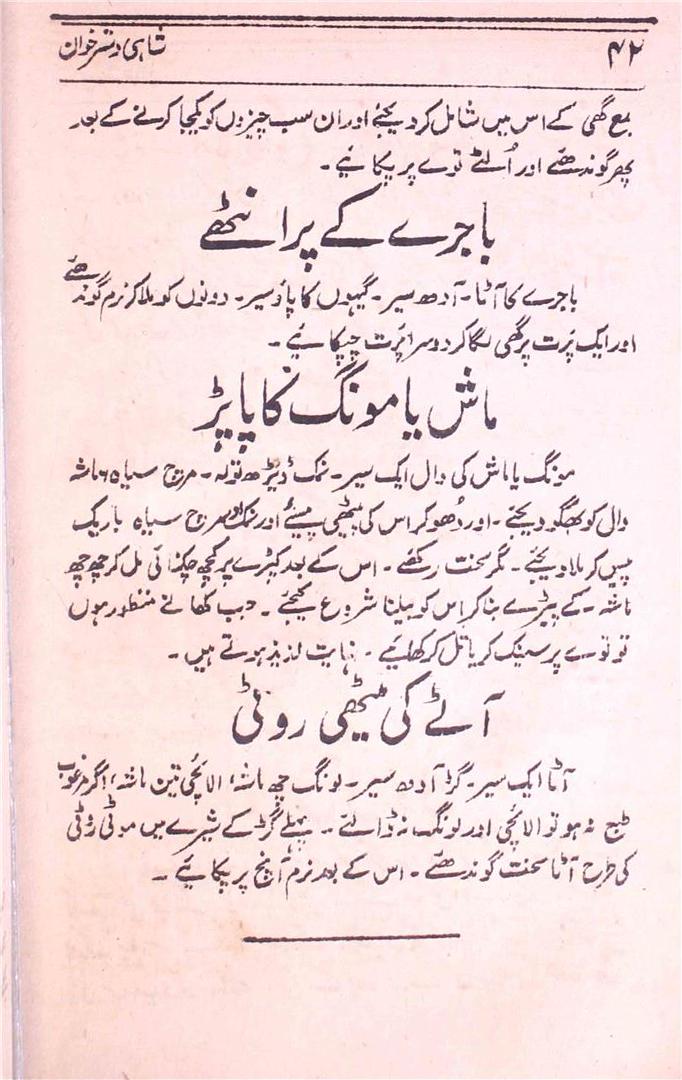 ۴۲ شاہی دسترخوان
مع گھی کے اس میں شامل کر دیجئے اور ان سب چیزوں کو یکجا کرنے کے بعد
پھر گوندھئے اور اُلٹے توے پر پکائیے۔
باجرے کے پرانٹھے
باجرے کا آٹا۔ آدھ سیر۔ گیہوں کا پاؤ سیر۔ دونوں کو ملا کر نرم گوندھئے
اور ایک پَرت پر گھی لگا کر دوسرا پَرت چپکائیے۔
ماش یا مونگ کا پاپڑ
مونگ یا ماش کی دال ایک سیر۔ نمک ڈیڑھ تولہ۔ مرچ سیاہ ۶ ماشہ
دال کو بھگو دیجئے۔ اور دُھو کر اس کی پیٹھی پیسئے اور نمک اور مرچ سیاہ باریک
پیس کر ملا دیجئے۔ مگر سخت رکھئے۔ اس کے بعد کپڑے پر کچھ چکنائی مل کر چھ چھ
ماشہ۔ کے پیڑے بنا کر اس کو بیلنا شروع کیجئے۔ جب کھانے منظور ہوں
تو توے پر سینک کر یا تل کر کھائیے۔ نہایت لذیذ ہوتے ہیں۔
آٹے کی میٹھی روٹی
آٹا ایک سیر۔ گڑ آدھ سیر۔ لونگ چھ ماشہ، الائچی تین ماشہ، اگر مرغوب
طبع نہ ہو تو الائچی اور لونگ نہ ڈالئے۔ پہلے گڑ کے شیرے میں موٹی روٹی
کی طرح آٹا سخت گوندھئے۔ اس کے بعد نرم آنچ پر پکائیے۔